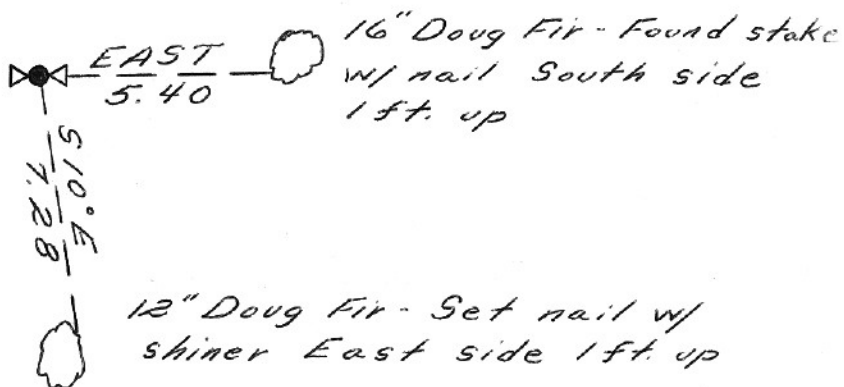 EAST
5.40
16" Doug Fir - Found stake
w/ nail South side
1 ft. up
S10°E
7.28
12" Doug Fir - Set nail w/
shiner East side 1 ft. up